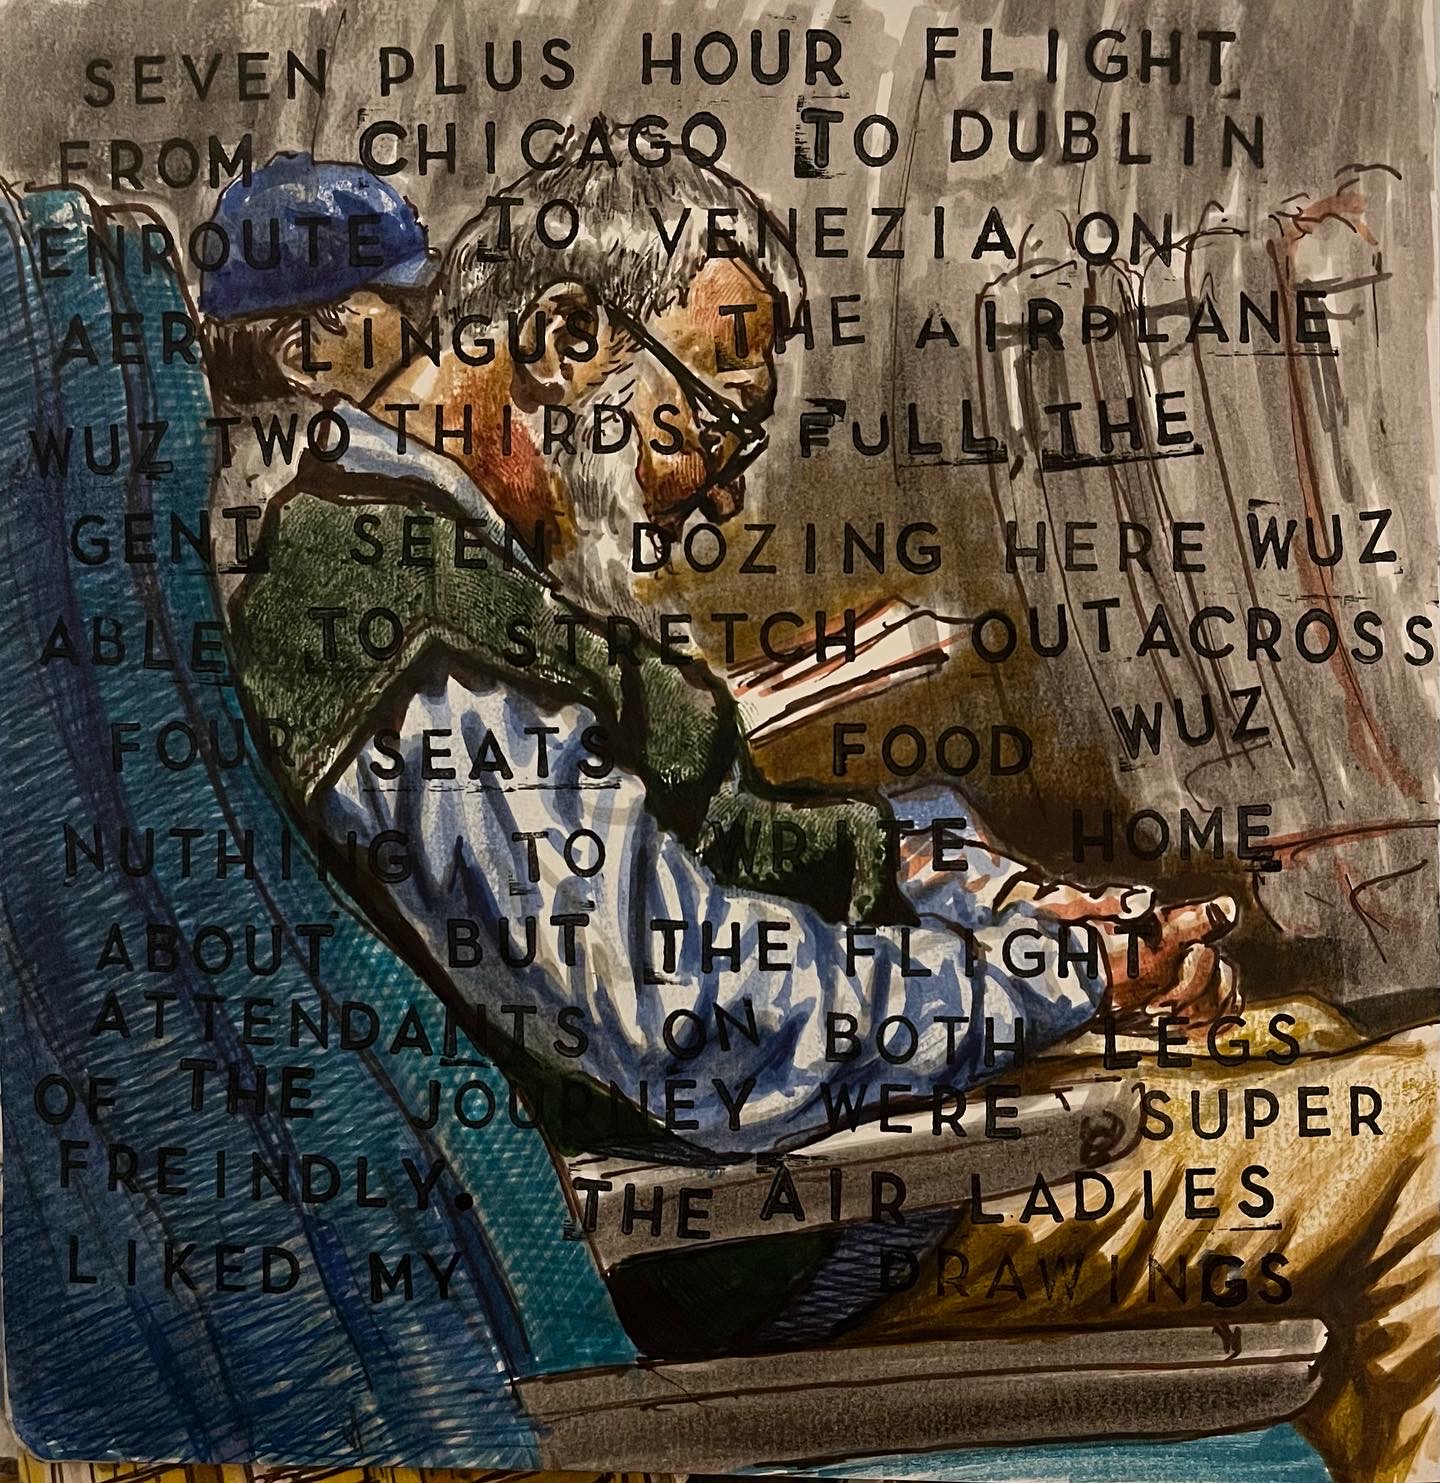 SEVEN PLUS HOUR FLIGHT
FROM CHICAGO TO DUBLIN
ENROUTE TO VENEZIA ON
AER LINGUS THE AIRPLANE
WUZ TWO THIRDS FULL THE
GENT SEEN DOZING HERE WUZ
ABLE TO STRETCH OUT ACROSS
FOUR SEATS FOOD WUZ
NUTHING TO WRITE HOME
ABOUT BUT THE FLIGHT
ATTENDANTS ON BOTH LEGS
OF THE JOURNEY WERE SUPER
FREINDLY. THE AIR LADIES
LIKED MY DRAWINGS